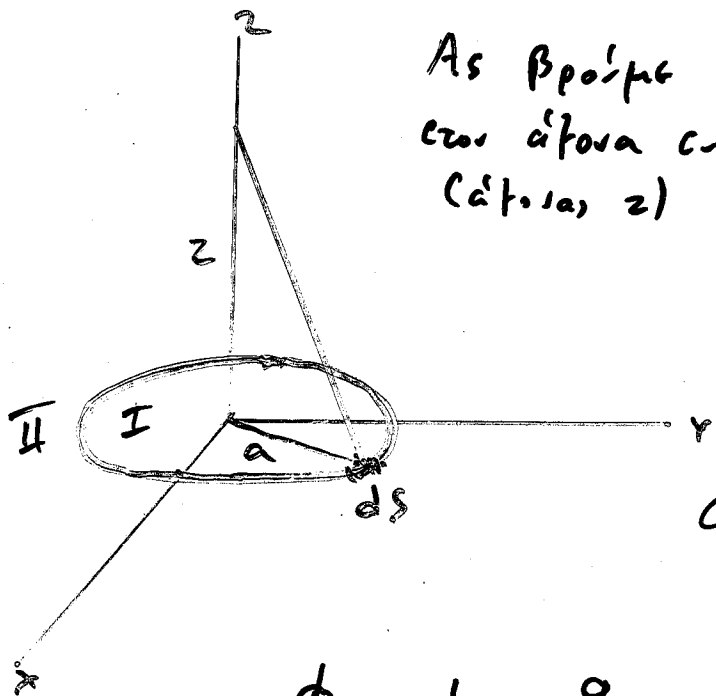 z
Ας βρούμε
στον άξονα
(άξονας z)
z
II I
a
y
ds
x